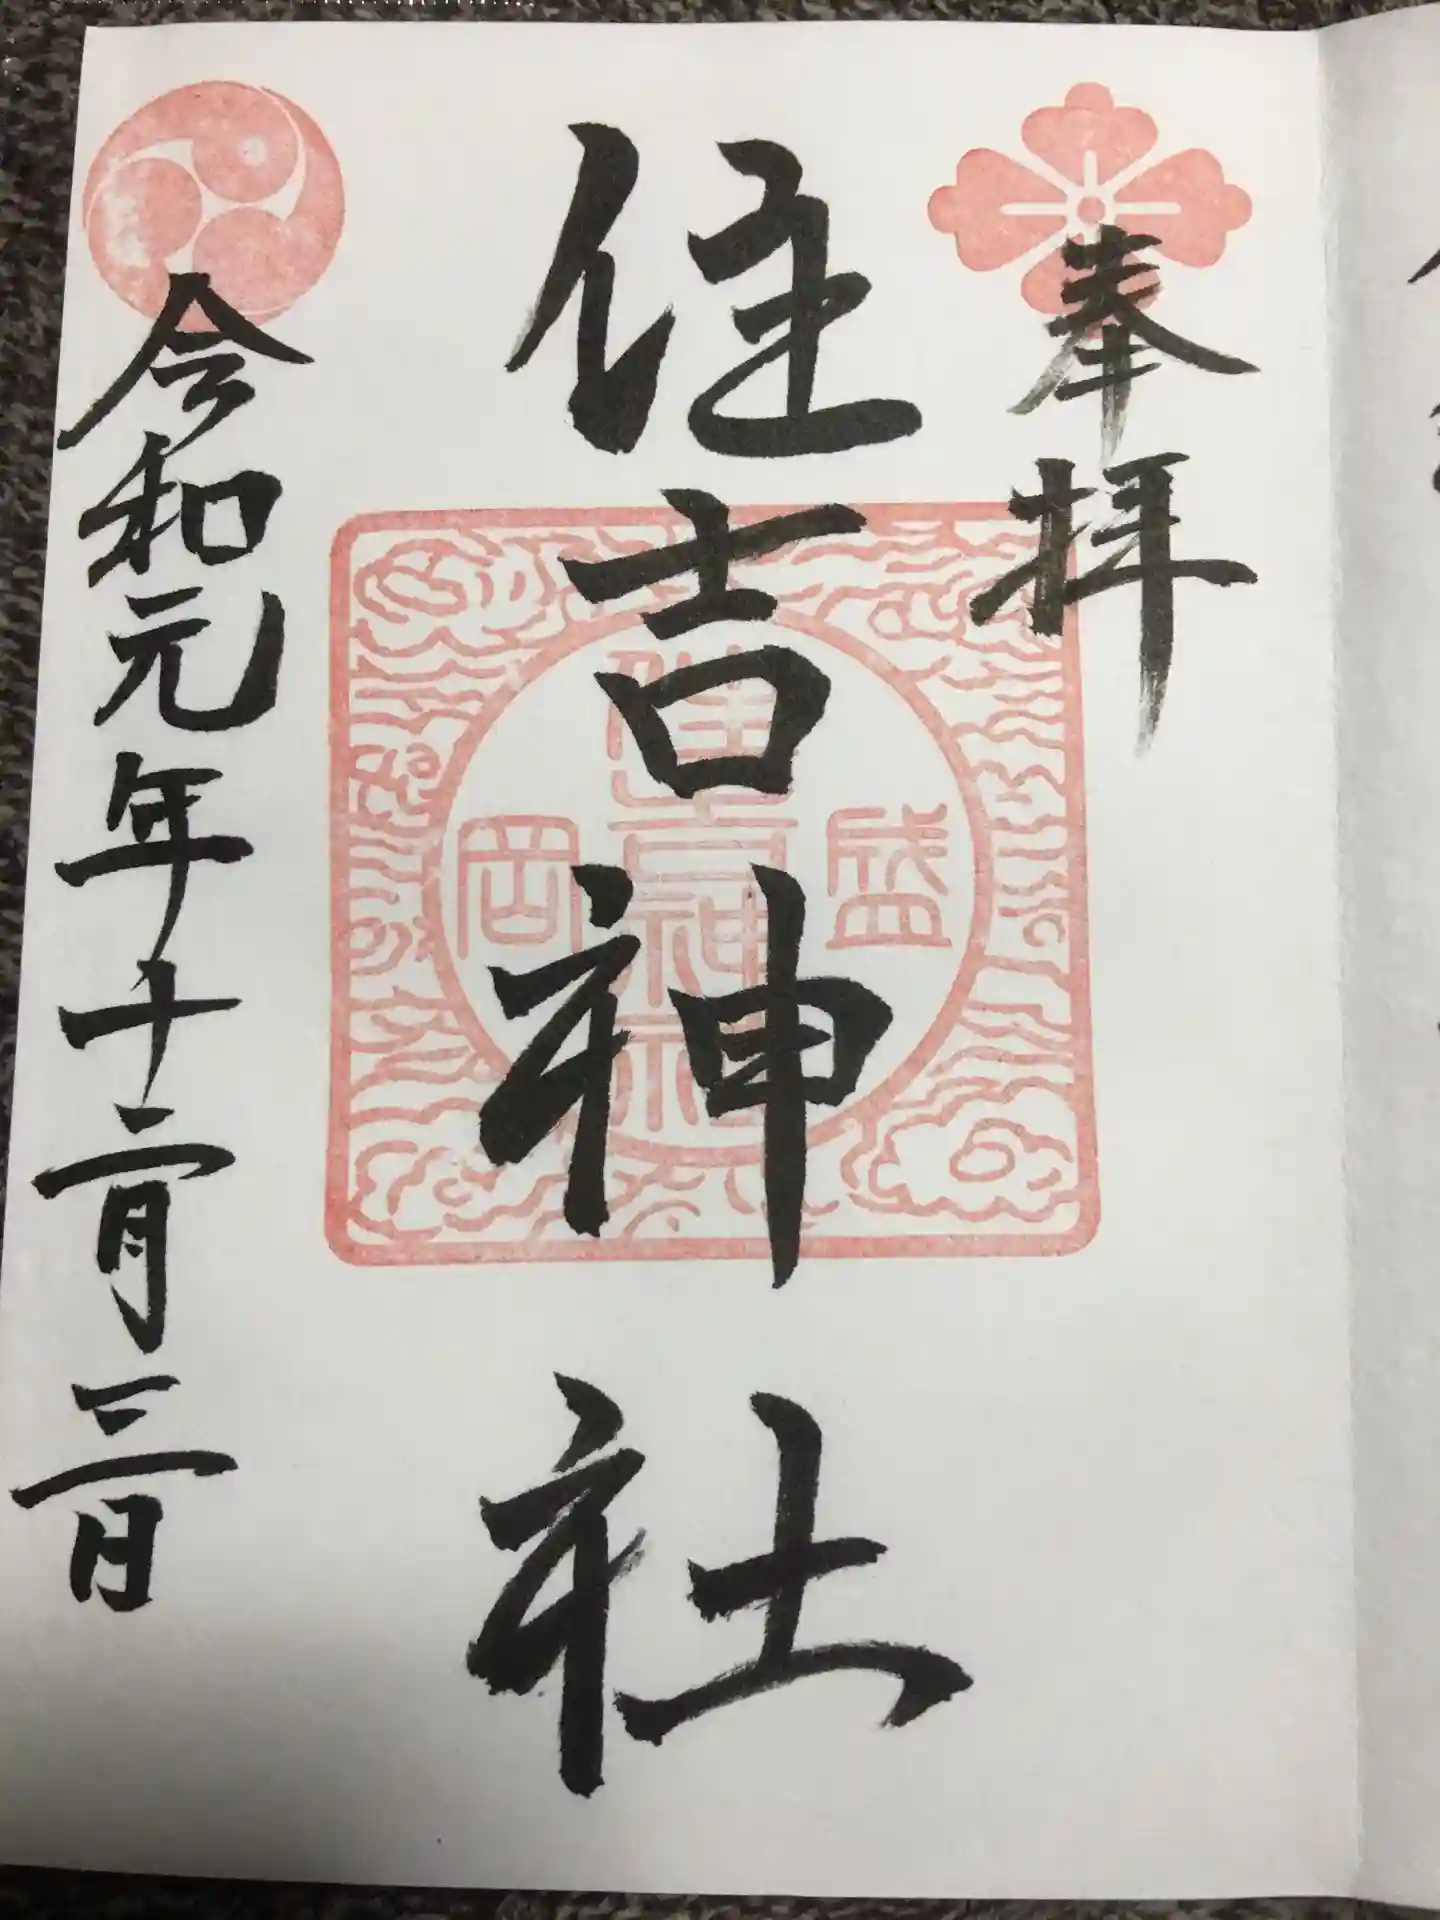 奉拝
住吉神社
盛
住吉神社
岡
令和元年十二月三日